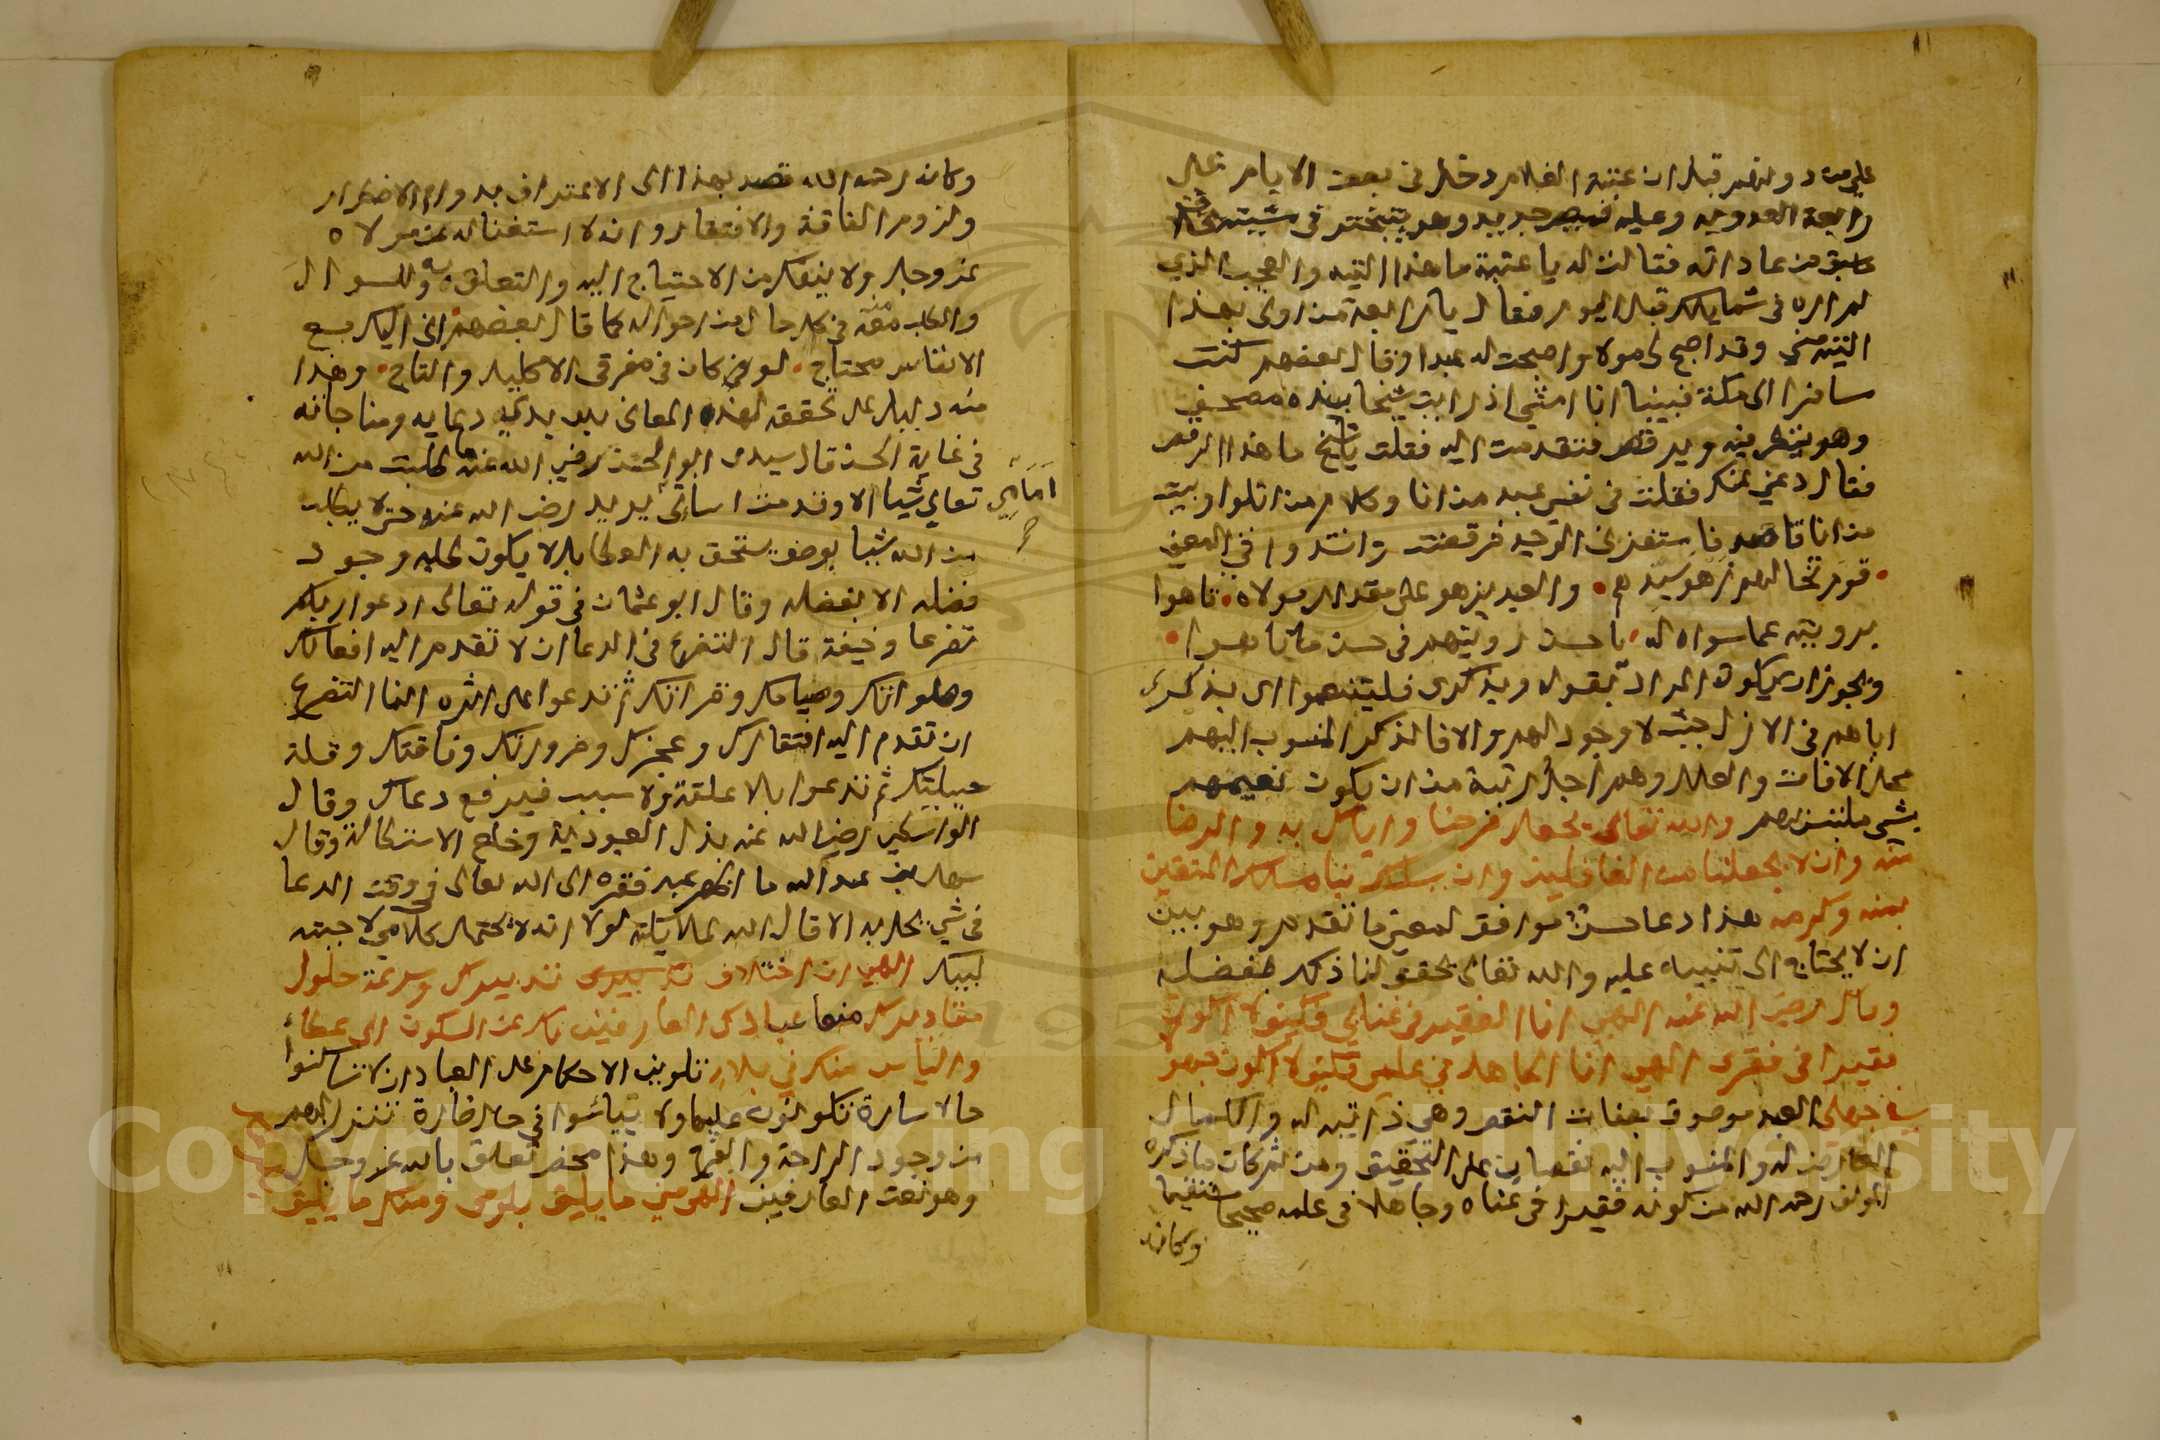 على من دونهم قيل ان عتبة الغلام دخل في بعض الايام على
رابعة العدوية وعليه قميص جديد وهو يتبختر في مشيته خلاف
ما سبق من عاداته فقالت له يا عتبة ما هذا التيه والعجب الذي
لم اره في شمايلك قبل اليوم فقال يا رابعة من اولى بهذا
التيه مني وقد اصبح لي مولا واصبحت له عبدا وقال بعضهم كنت
سافرا الى مكة فبينا انا امشي اذ رايت شيخا بيده مصحف
وهو ينظر فيه ويرقص فتقدمت اليه فقلت يا شيخ ما هذا الرقص
فقال دعني عنك فقلت في نفسي عبد من انا وكلام من اتلوا وبيت
من انا قاصد فاستفزني الوجد فرقصت وانشدوا في المعنى
قوم تخالهم زهو بسيدهم • والعبد يزهو على مقدار مولاه • تاهوا
برويته عما سواه له • يا حسن رويتهم في حسن ما تاهوا •
ويجوز ان يكون المراد بقوله وبذكري فليتنعموا اي بذكري
اياهم في الازل حيث لا وجود لهم والا فالذكر المنسوب اليهم
محل الافات والعلل وهم اجل رتبة من ان يكون نعيمهم
بشي ملتبس بهم والله تعالى يجعل فرحنا واياك به والرضا
منه وان لا يجعلنا من الغافلين وان يسلك بنا مسالك المتقين
بمنه وكرمه هذا دعا حسن موافق لمعنى ما تقدم وهو بين
ان لا يحتاج الى تنبيه عليه والله تعالى يحقق لنا ذلك بفضله
وقال رضي الله عنه الهي انا الفقير في غناي فكيف لا اكون
فقيرا في فقري الهي انا الجاهل في علمي فكيف لا اكون جهولا
في جهلي العبد موصوف بصفات النقص وهي ذاتية له والكمال
العارض له والمنسوب اليه نقصان على التحقيق ومن ثم كان ما ذكره
المولف رحمه الله من كونه فقيرا في غناه وجاهلا في علمه صحيحا مستقيما
وكانه
وكانه رحمه الله قصد بهذا الى الاعتراف بدوام الاضطرار
ولزوم الفاقة والافتقار وانه لا استغنا له عن مولاه
عز وجل ولا ينفك من الاحتياج اليه والتعلق به والسوال
والطلب منه في كل حال من احواله كما قال بعضهم اني اليك مع
الانفاس محتاج • لو كان في مفرقي الاكليل والتاج • وهذا
منه دليل على تحققه لهذه المعاني بين يدي دعايه ومناجاته
في غاية الحسن قال سيدي ابو الحسن رضي الله عنه ما طلبت من الله
تعالى شيا الا وقدمت اساتي بين يديه رضي الله عنه حتى لا يطلب
امامي
من الله شيا بوصف يستحق به العطا بل لا يكون طلبه وجود
فضله الا بفضله وقال ابو عثمان في قوله تعالى ادعوا ربكم
تضرعا وخيفة قال التضرع في الدعا ان لا تقدم اليه افعالك
وصلواتك وصيامك وقرانك ثم تدعوا على اثره انما التضرع
ان تقدم اليه افتقارك وعجزك وضرورتك وفاقتك وقلة
حيلتك ثم تدعوا بلا علقة ولا سبب فيرفع دعاك وقال
الواسطي رضي الله عنه بذل العبودية وخلع الاستطالة وقال
سهل بن عبد الله ما اظهر عبد فقره الى الله تعالى في وقت الدعا
في شي يحل به الا قال الله لملايكته لولا انه لا يحتمل كلامي لاجبته
لبيك الهي ان اختلاف تدبيرك وسرعة حلول
مقاديرك منعا عبادك العارفين بك عن السكون الى عطا
والياس منك في بلا تلوين الاحكام على العباد ان لا يساكنوا
حالا سارة تكونون عليها ولا ييأسوا في حال ضارة تنزل بهم
من وجود الراحة والفرج وهذا محض تعلق بالله عز وجل
وهو نعت العارفين الهي مني ما يليق بلومي ومنك ما يليق